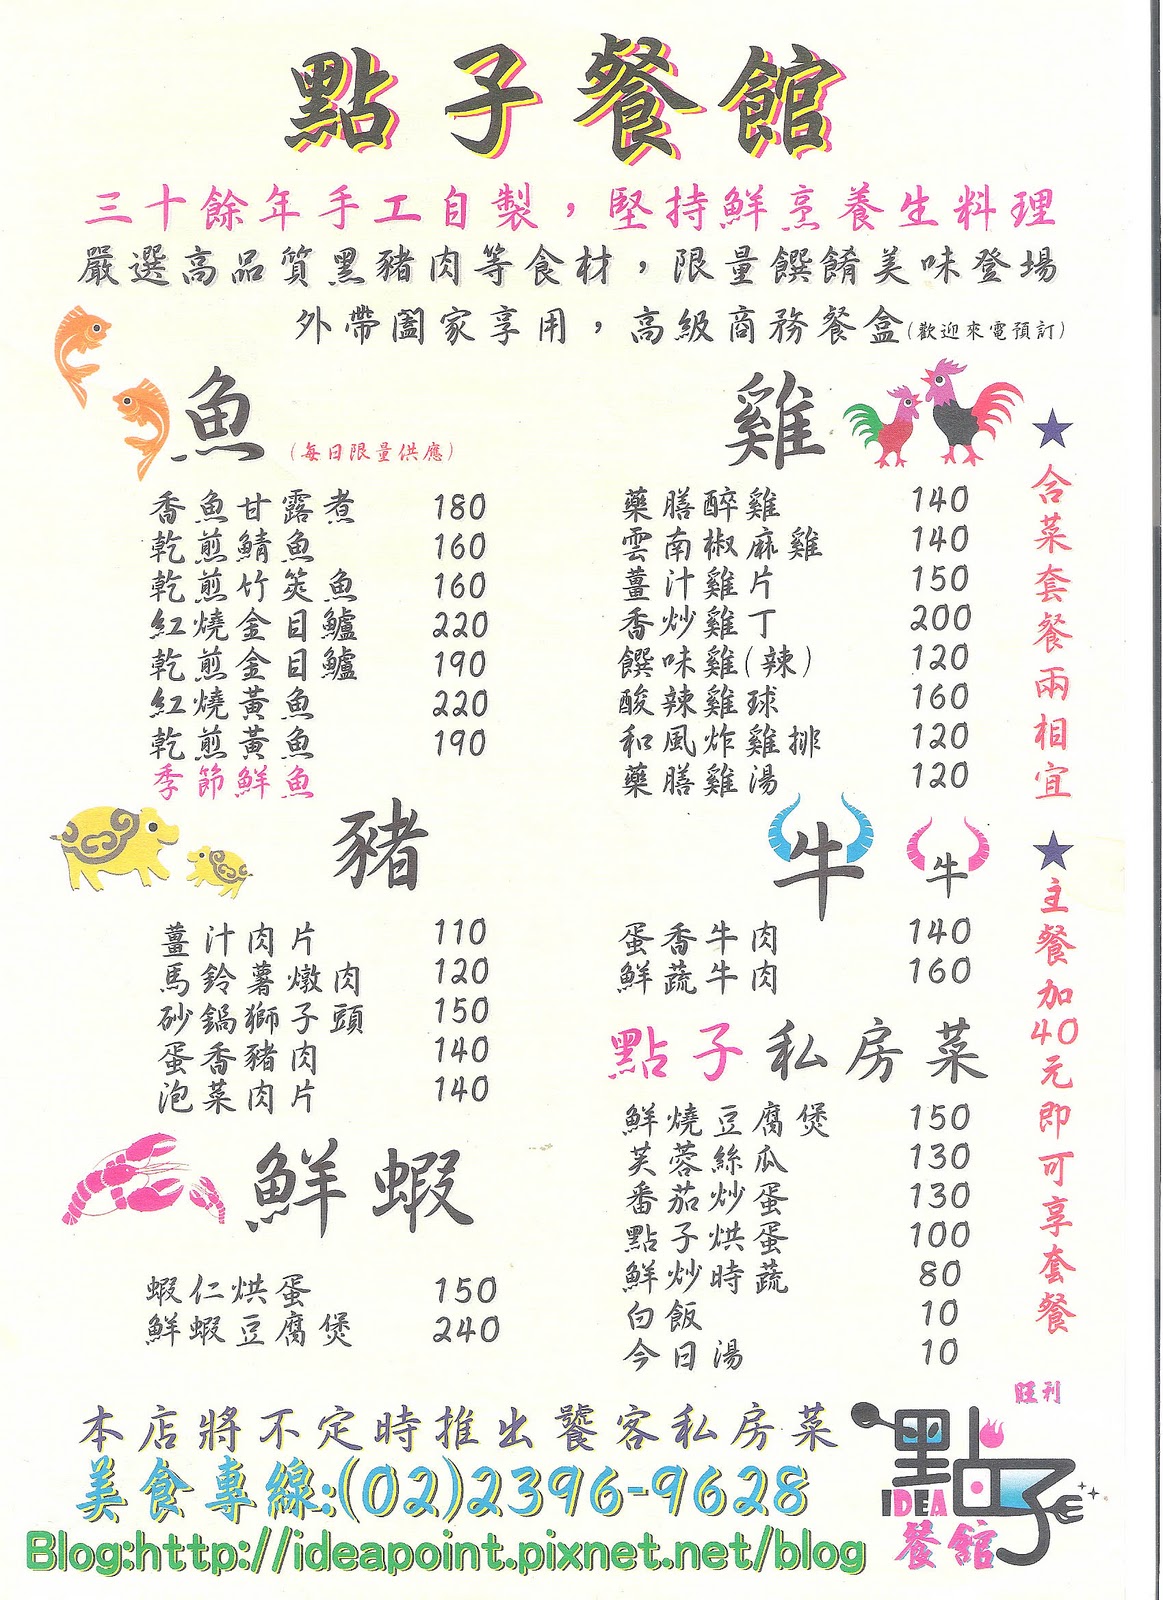 點子餐館
三十餘年手工自製，堅持鮮烹養生料理
嚴選高品質黑豬肉等食材，限量饌餚美味登場
外帶闔家享用，高級商務餐盒(歡迎來電預訂)
魚(每日限量供應)
香魚甘露煮 180
乾煎鯖魚 160
乾煎竹筴魚 160
紅燒金目鱸 220
乾煎金目鱸 190
紅燒黃魚 220
乾煎黃魚 190
季節鮮魚
豬
薑汁肉片 110
馬鈴薯燉肉 120
砂鍋獅子頭 150
蛋香豬肉 140
泡菜肉片 140
鮮蝦
蝦仁烘蛋 150
鮮蝦豆腐煲 240
雞
藥膳醉雞 140
雲南椒麻雞 140
薑汁雞片 150
香炒雞丁 200
饌味雞(辣) 120
酸辣雞球 160
和風炸雞排 120
藥膳雞湯 120
牛 牛
蛋香牛肉 140
鮮蔬牛肉 160
點子私房菜
鮮燒豆腐煲 150
芙蓉絲瓜 130
番茄炒蛋 130
點子烘蛋 100
鮮炒時蔬 80
白飯 10
今日湯 10
★合菜套餐兩相宜
★主餐加40元即可享套餐
本店將不定時推出饕客私房菜
美食專線:(02)2396-9628
Blog:http://ideapoint.pixnet.net/blog
旺利
點子
IDEA
餐館